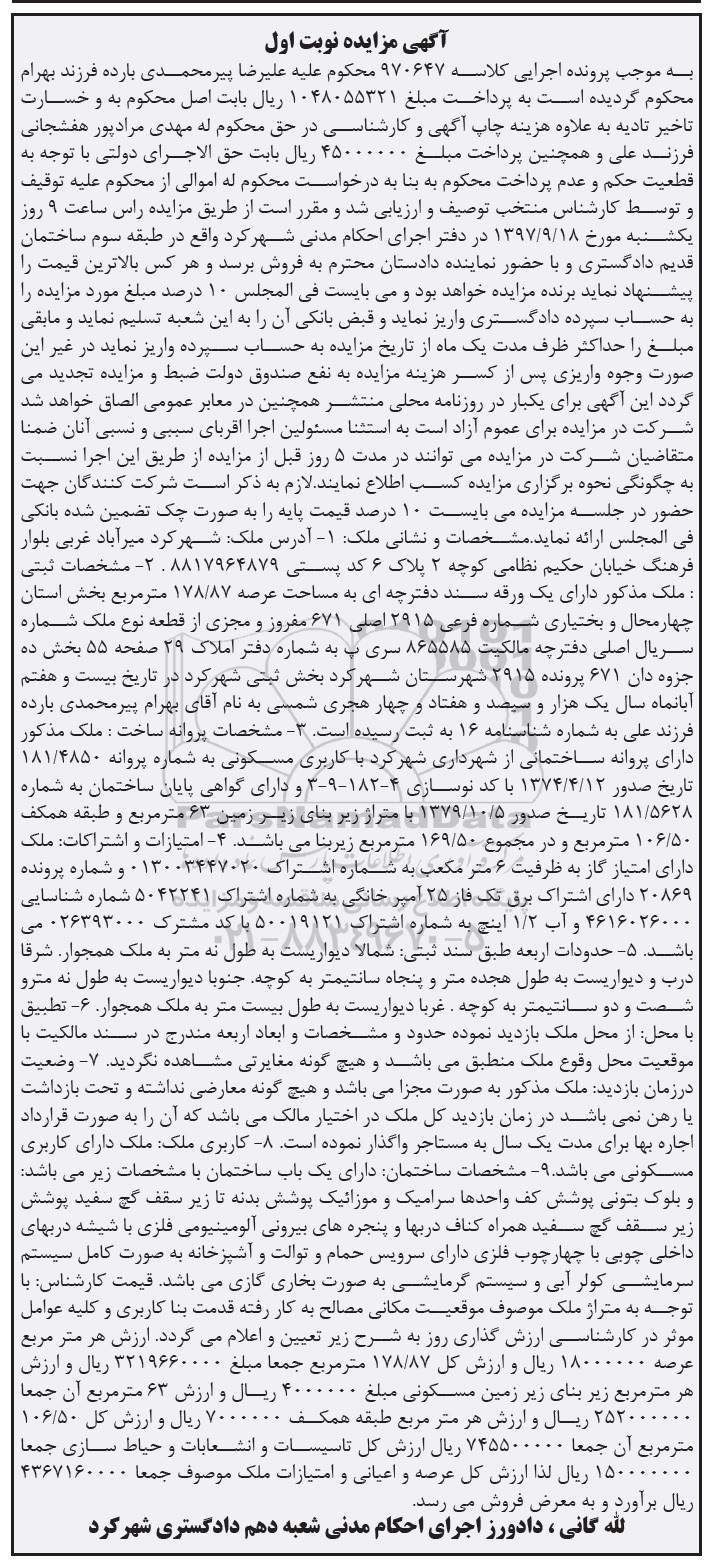 آگهی مزایده نوبت اول
به موجب پرونده اجرایی کلاسه ۹۷۰۶۴۷ محکوم علیه علیرضا پیرمحمدی بارده فرزند بهرام
محکوم گردیده است به پرداخت مبلغ ۱۰۴۸۰۵۵۳۲۱ ریال بابت اصل محکوم به و خسارت
تاخیر تادیه به علاوه هزینه چاپ آگهی و کارشناسی در حق محکوم له مهدی مرادپور هفشجانی
فرزند علی و همچنین پرداخت مبلغ ۴۵۰۰۰۰۰۰ ریال بابت حق الاجرای دولتی با توجه به
قطعیت حکم و عدم پرداخت محکوم به بنا به درخواست محکوم له اموالی از محکوم علیه توقیف
و توسط کارشناس منتخب توصیف و ارزیابی شد و مقرر است از طریق مزایده راس ساعت ۹ روز
یکشنبه مورخ ۱۳۹۷/۹/۱۸ در دفتر اجرای احکام مدنی شهرکرد واقع در طبقه سوم ساختمان
قدیم دادگستری و با حضور نماینده دادستان محترم به فروش برسد و هر کس بالاترین قیمت را
پیشنهاد نماید برنده مزایده خواهد بود و می بایست فی المجلس ۱۰ درصد مبلغ مورد مزایده را
به حساب سپرده دادگستری واریز نماید و قبض بانکی آن را به این شعبه تسلیم نماید و مابقی
مبلغ را حداکثر ظرف مدت یک ماه از تاریخ مزایده به حساب سپرده واریز نماید در غیر این
صورت وجوه واریزی پس از کسر هزینه مزایده به نفع صندوق دولت ضبط و مزایده تجدید می
گردد این آگهی برای یکبار در روزنامه محلی منتشر همچنین در معابر عمومی الصاق خواهد شد
شرکت در مزایده برای عموم آزاد است به استثنا مسئولین اجرا اقربای سببی و نسبی آنان ضمنا
متقاضیان شرکت در مزایده می توانند در مدت ۵ روز قبل از مزایده از طریق این اجرا نسبت
به چگونگی نحوه برگزاری مزایده کسب اطلاع نمایند.لازم به ذکر است شرکت کنندگان جهت
حضور در جلسه مزایده می بایست ۱۰ درصد قیمت پایه را به صورت چک تضمین شده بانکی
فی المجلس ارائه نماید.مشخصات و نشانی ملک: ۱- آدرس ملک: شهرکرد میرآباد غربی بلوار
فرهنگ خیابان حکیم نظامی کوچه ۲ پلاک ۶ کد پستی ۸۸۱۷۹۶۴۸۷۹ . ۲- مشخصات ثبتی
: ملک مذکور دارای یک ورقه سند دفترچه ای به مساحت عرصه ۱۷۸/۸۷ مترمربع بخش استان
چهارمحال و بختیاری شماره فرعی ۲۹۱۵ اصلی ۶۷۱ مفروز و مجزی از قطعه نوع ملک شماره
سریال اصلی دفترچه مالکیت ۸۶۵۵۸۵ سری پ به شماره دفتر املاک ۲۹ صفحه ۵۵ بخش ده
جزوه دان ۶۷۱ پرونده ۲۹۱۵ شهرستان شهرکرد بخش ثبتی شهرکرد در تاریخ بیست و هفتم
آبانماه سال یک هزار و سیصد و هفتاد و چهار هجری شمسی به نام آقای بهرام پیرمحمدی بارده
فرزند علی به شماره شناسنامه ۱۶ به ثبت رسیده است. ۳- مشخصات پروانه ساخت : ملک مذکور
دارای پروانه ساختمانی از شهرداری شهرکرد با کاربری مسکونی به شماره پروانه ۱۸۱/۴۸۵۰
تاریخ صدور ۱۳۷۴/۴/۱۲ با کد نوسازی ۴-۱۸۲-۹-۳ و دارای گواهی پایان ساختمان به شماره
۱۸۱/۵۶۲۸ تاریخ صدور ۱۳۷۹/۱۰/۵ با متراژ زیر بنای زیر زمین ۶۳ مترمربع و طبقه همکف
۱۰۶/۵۰ مترمربع و در مجموع ۱۶۹/۵۰ مترمربع زیربنا می باشد. ۴- امتیازات و اشتراکات: ملک
دارای امتیاز گاز به ظرفیت ۶ متر مکعب به شماره اشتراک ۰۱۳۰۰۳۴۴۷۰۲۰ و شماره پرونده
۲۰۸۶۹ دارای اشتراک برق تک فاز ۲۵ آمپر خانگی به شماره اشتراک ۵۰۴۲۲۴۱ شماره شناسایی
۴۶۱۶۰۲۶۰۰۰ و آب ۱/۲ اینچ به شماره اشتراک ۵۰۰۱۹۱۲۱ با کد مشترک ۰۲۶۳۹۳۰۰۰ می
باشد. ۵- حدودات اربعه طبق سند ثبتی: شمالا دیواریست به طول نه متر به ملک همجوار. شرقا
درب و دیواریست به طول هجده متر و پنجاه سانتیمتر به کوچه. جنوبا دیواریست به طول نه مترو
شصت و دو سانتیمتر به کوچه . غربا دیواریست به طول بیست متر به ملک همجوار. ۶- تطبیق
با محل: از محل ملک بازدید نموده حدود و مشخصات و ابعاد اربعه مندرج در سند مالکیت با
موقعیت محل وقوع ملک منطبق می باشد و هیچ گونه مغایرتی مشاهده نگردید. ۷- وضعیت
درزمان بازدید: ملک مذکور به صورت مجزا می باشد و هیچ گونه معارضی نداشته و تحت بازداشت
یا رهن نمی باشد در زمان بازدید کل ملک در اختیار مالک می باشد که آن را به صورت قرارداد
اجاره بها برای مدت یک سال به مستاجر واگذار نموده است. ۸- کاربری ملک: ملک دارای کاربری
مسکونی می باشد.۹- مشخصات ساختمان: دارای یک باب ساختمان با مشخصات زیر می باشد:
و بلوک بتونی پوشش کف واحدها سرامیک و موزائیک پوشش بدنه تا زیر سقف گچ سفید پوشش
زیر سقف گچ سفید همراه کناف دربها و پنجره های بیرونی آلومینیومی فلزی با شیشه دربهای
داخلی چوبی با چهارچوب فلزی دارای سرویس حمام و توالت و آشپزخانه به صورت کامل سیستم
سرمایشی کولر آبی و سیستم گرمایشی به صورت بخاری گازی می باشد. قیمت کارشناس: با
توجه به متراژ ملک موصوف موقعیت مکانی مصالح به کار رفته قدمت بنا کاربری و کلیه عوامل
موثر در کارشناسی ارزش گذاری روز به شرح زیر تعیین و اعلام می گردد. ارزش هر متر مربع
عرصه ۱۸۰۰۰۰۰۰ ریال و ارزش کل ۱۷۸/۸۷ مترمربع جمعا مبلغ ۳۲۱۹۶۶۰۰۰۰ ریال و ارزش
هر مترمربع زیر بنای زیر زمین مسکونی مبلغ ۴۰۰۰۰۰۰ ریال و ارزش ۶۳ مترمربع آن جمعا
۲۵۲۰۰۰۰۰۰ ریال و ارزش هر متر مربع طبقه همکف ۷۰۰۰۰۰۰ ریال و ارزش کل ۱۰۶/۵۰
مترمربع آن جمعا ۷۴۵۵۰۰۰۰۰ ریال ارزش کل تاسیسات و انشعابات و حیاط سازی جمعا
۱۵۰۰۰۰۰۰۰ ریال لذا ارزش کل عرصه و اعیانی و امتیازات ملک موصوف جمعا ۴۳۶۷۱۶۰۰۰۰
ریال برآورد و به معرض فروش می رسد.
لله گانی ، دادورز اجرای احکام مدنی شعبه دهم دادگستری شهرکرد
ParsNamadData
۰۲۱-۸۸۳۴۹۶۷۰-۵